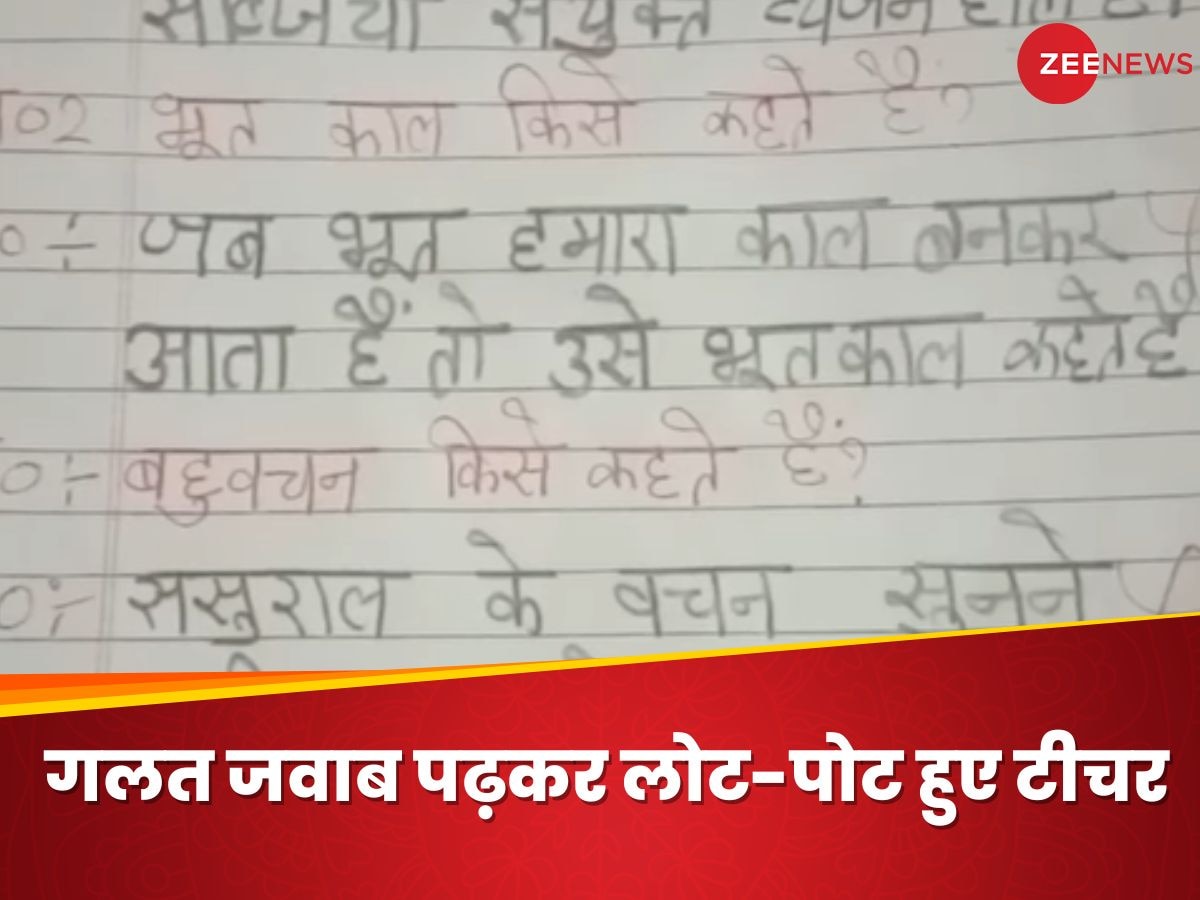 सब्जियां संयुक्त व्यंजन
ZEE NEWS
०2 भूत काल किसे कहते हैं?
०÷ जब भूत हमारा काल बनकर
आता हैं तो उसे भूतकाल कहते है
०÷ बहुवचन किसे कहते हैं?
०÷ ससुराल के वचन सुनने
गलत जवाब पढ़कर लोट-पोट हुए टीचर